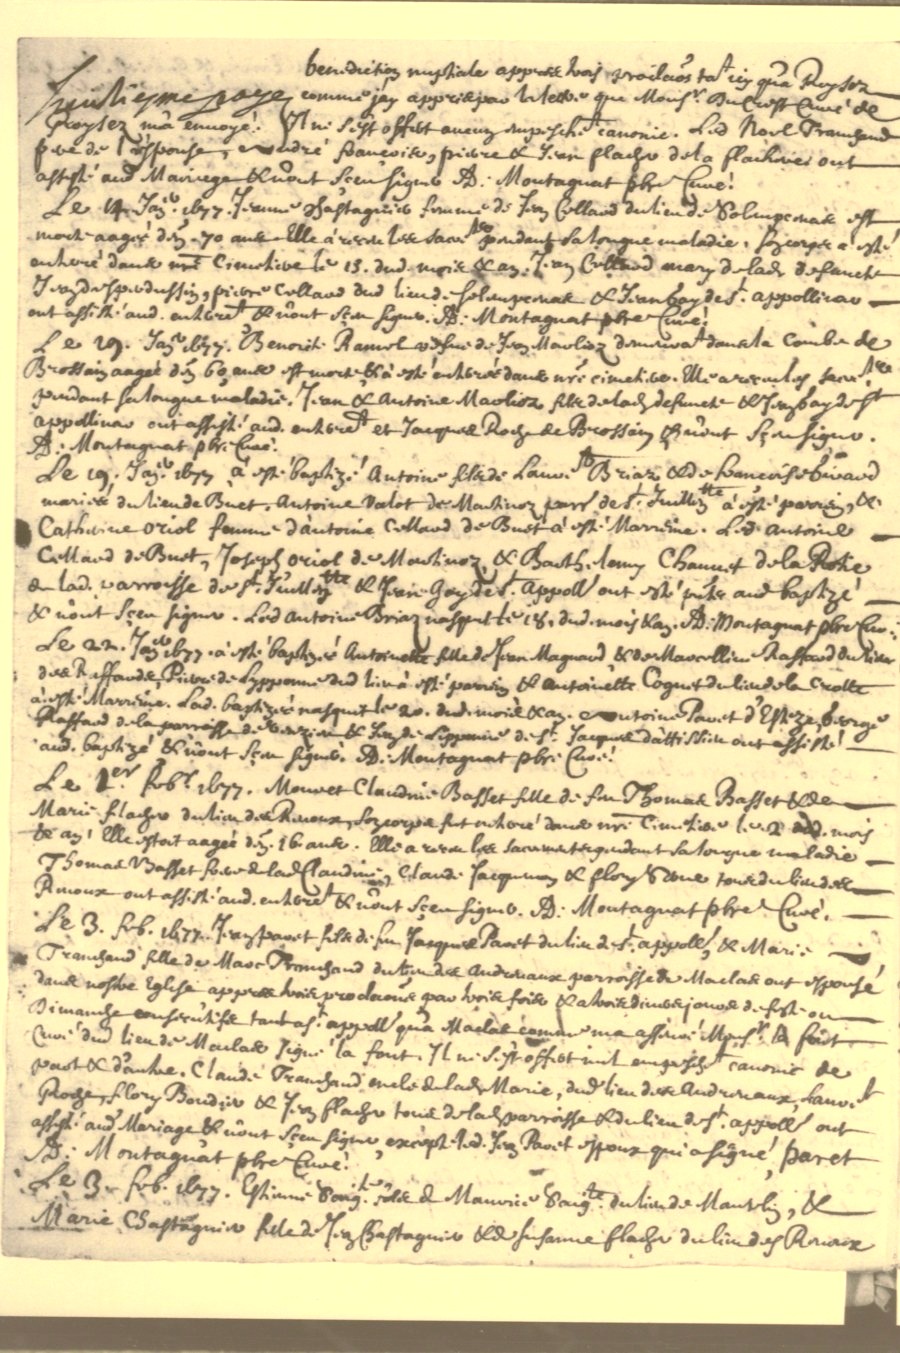 benediction nuptiale apprès trois proclaõs tãt icy qu'a Roysez
huictiesme page comme j'ay appris par la lettre que Mons.r Ducrost Curé de
Roysez m'a envoyé. Il ne s'est offert aucun empeschem.t canonic. Led Noel Tranchand
pere de l'espouse, André françois, pierre & Jean flacher de la flacherie ont
assisté aud Mariage & n'ont sceu signer. A: Montagnat pbre Curé.
Le 14. Janv. 1677. Jeanne Chastagnier femme de Jean Collaud du lieu de Solmperenas est
morte aagée d'en. 70 ans. Elle a receu les sacre.tz pendant sa longue maladie. son corps a esté
enterré dans nr̃e Cimetiere le 15. dud. mois & an. Jean Collaud mary de lad. defuncte
Jean, pierre Collaud dud lieu de Solomperenas & Jean bay de s.t appollinar
ont assisté aud. enterre.t & n'ont sceu signer. A: Montagnat pbre Curé.
Le 19. Janv. 1677. Benoite Ramel vesve de Jean Marlioz demeura.t dans la Combe de
Brossain aagée d'en 60 ans est morte & a esté enterrée dans nr̃e cimetiere. Elle a receu les sacre.tz
pendant sa longue maladie. Jean & Antoine Marlioz fils de lad defuncte & Jean bay de s.t
appollinar ont assisté aud. enterre.t et Jacques Roche de Brossain & n'ont sceu signer.
A: Montagnat pbre Curé.
Le 19. Janv. 1677 a esté baptizé Antoine fils de Laure.t Briaz & de francoise Giraud
mariés du lieu de Buet. Antoine Valot de Moulinoz parr. de s.t Juilli.tte a esté parrin, &
Catherine Oriol femme d'antoine Collaud de Buet a esté Marreine. Led. Antoine
Collaud de Buet, Joseph Oriol de Moulinoz, & Barthelemy Chaumet de la Rotie
de lad. parroisse de s.t Juilli.tte & Jean Gay de s.t Appoll. ont esté pñts aud baptizé
& n'ont sceu signer. Led Antoine Briaz nasquit le 18. dud. mois & an. A: Montagnat pbre Curé.
Le 22. Janv. 1677. a esté baptizée Antoinette fille de Jean Magnaud & de Marcelline Raffaud du lieu
des Raffauds, Pierre de Lypponne dud lieu a esté parrin & Antoinette Coquet du lieu de la Crotte
a esté Marreine. Lad. baptizée nasquit le 20. dud. mois & an. Antoine Pavet d'Esteze, George
Raffaud de la parroisse de & Jean de Lipponne de s.t Jacques d'attission ont assisté
aud. baptizé & n'ont sceu signer. A: Montagnat pbre Curé.
Le 1.er febr. 1677. Mourut Claudine Basset fille de feu Thomas Basset & de
Marie flacher du lieu des Rinoux, son corps fut enterré dans nr̃e Cimetiere le 2 dud. mois
& an. Elle estoit aagée d'en. 16 ans. Elle a receu les sacrements pendant sa longue maladie
Thomas Basset frere de lad Claudine, Claude Jacquemon & flory tous du lieu des
Rinoux ont assisté aud. enterre.t & n'ont sceu signer. A: Montagnat pbre Curé.
Le 3. feb. 1677. Jean pavet fils de feu Jacques Pavet du lieu de s.t appoll., & Marie
Tranchand fille de Marc Tranchand du lieu des Andrevaux parroisse de Maclas ont espousé
dans nostre Eglise apprès trois proclaõns par trois fois & a trois divers jours de feste ou
Dimanche consecutifs tant a s.t appoll. qu'a Maclas comme m'a assuré Mons.r la font
Curé dud lieu de Maclas signé la font. Il ne s'est offert nul empesche.t canonic de
part & d'autre. Claude Tranchand oncle de lad Marie, dud lieu des Andrevaux, Laure.t
Roche, flory Boudier & Jean flacher tous de la parroisse & du lieu de s.t appoll. ont
assisté aud Mariage & n'ont sceu signer, excepté led. Jean Pavet espoux qui a signé, pavet
A: Montagnat pbre Curé.
Le 3. feb. 1677. Estienne fils de Maurice du lieu de Mantelin, &
Marie Chastagnier fille de Jean Chastagnier & de Susanne flacher du lieu des Rinoux